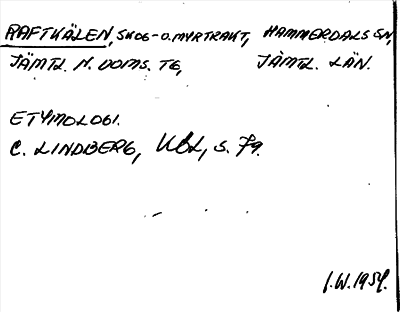 RAFTKÄLEN, SKOG- O. MYRTRAKT, HAMMERDALS SN,
JÄMTL. N. DOMS. TG, JÄMTL. LÄN.
ETYMOLOGI.
C. LINDBERG, UÖL, S. 79.
J.W. 1954.